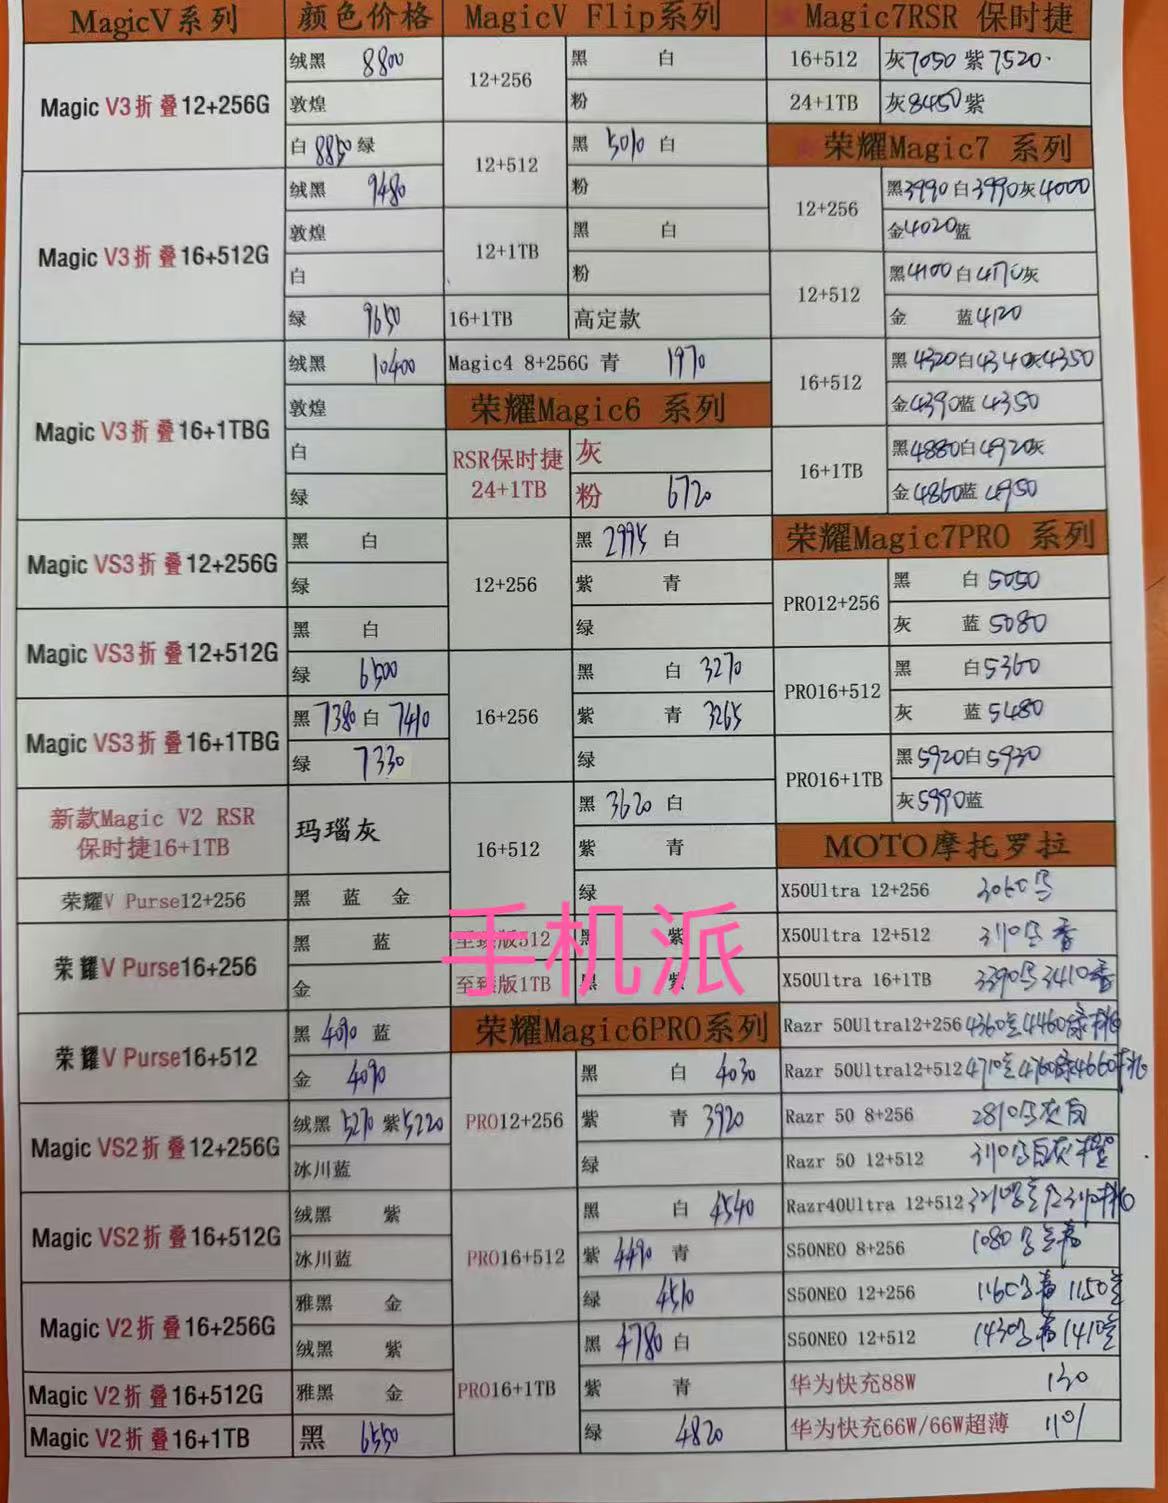 MagicV系列 颜色价格
Magic V3折叠12+256G
绒黑 8800
敦煌
白 8850 绿
Magic V3折叠16+512G
绒黑 9480
敦煌
白
绿 9650
Magic V3折叠16+1TBG
绒黑 10400
敦煌
白
绿
Magic VS3折叠12+256G
黑 白
绿
Magic VS3折叠12+512G
黑 白
绿 6500
Magic VS3折叠16+1TBG
黑 7380 白 7410
绿 7330
新款Magic V2 RSR
保时捷16+1TB
玛瑙灰
荣耀V Purse12+256
黑 蓝 金
荣耀V Purse16+256
黑 蓝
金
荣耀V Purse16+512
黑 4090 蓝
金 4090
Magic VS2折叠12+256G
绒黑 5270 紫5220
冰川蓝
Magic VS2折叠16+512G
绒黑 紫
冰川蓝
Magic V2折叠16+256G
雅黑 金
绒黑 紫
Magic V2折叠16+512G
雅黑 金
Magic V2折叠16+1TB
黑 6550
MagicV Flip系列
12+256
黑 白
粉
12+512
黑 5010 白
粉
12+1TB
黑 白
粉
16+1TB 高定款
Magic4 8+256G 青 1970
荣耀Magic6 系列
RSR保时捷
24+1TB
灰
粉 6720
12+256
黑 2995 白
紫 青
绿
16+256
黑 白 3270
紫 青 3265
绿
16+512
黑 3620 白
紫 青
绿
至臻版512 黑 紫
至臻版1TB 黑 紫
手机派
荣耀Magic6PRO系列
PRO12+256
黑 白 4030
紫 青 3920
绿
PRO16+512
黑 白 4540
紫 4490 青
绿 4510
PRO16+1TB
黑 4780 白
紫 青
绿 4820
Magic7RSR 保时捷
16+512 灰7050 紫7520
24+1TB 灰8450紫
荣耀Magic7 系列
12+256
黑3990白3990灰4000
金4020蓝
12+512
黑4100白4170灰
金 蓝4120
16+512
黑4320白4340灰4350
金4390蓝4350
16+1TB
黑4880白4920灰
金4860蓝4950
荣耀Magic7PRO 系列
PRO12+256
黑 白5050
灰 蓝5080
PRO16+512
黑 白5360
灰 蓝5480
PRO16+1TB
黑5920白5930
灰5990蓝
MOTO摩托罗拉
X50Ultra 12+256
X50Ultra 12+512
X50Ultra 16+1TB
Razr 50Ultra12+256
Razr 50Ultra12+512
Razr 50 8+256
Razr 50 12+512
Razr40Ultra 12+512
S50NEO 8+256
S50NEO 12+256
S50NEO 12+512
华为快充88W 130
华为快充66W/66W超薄 110